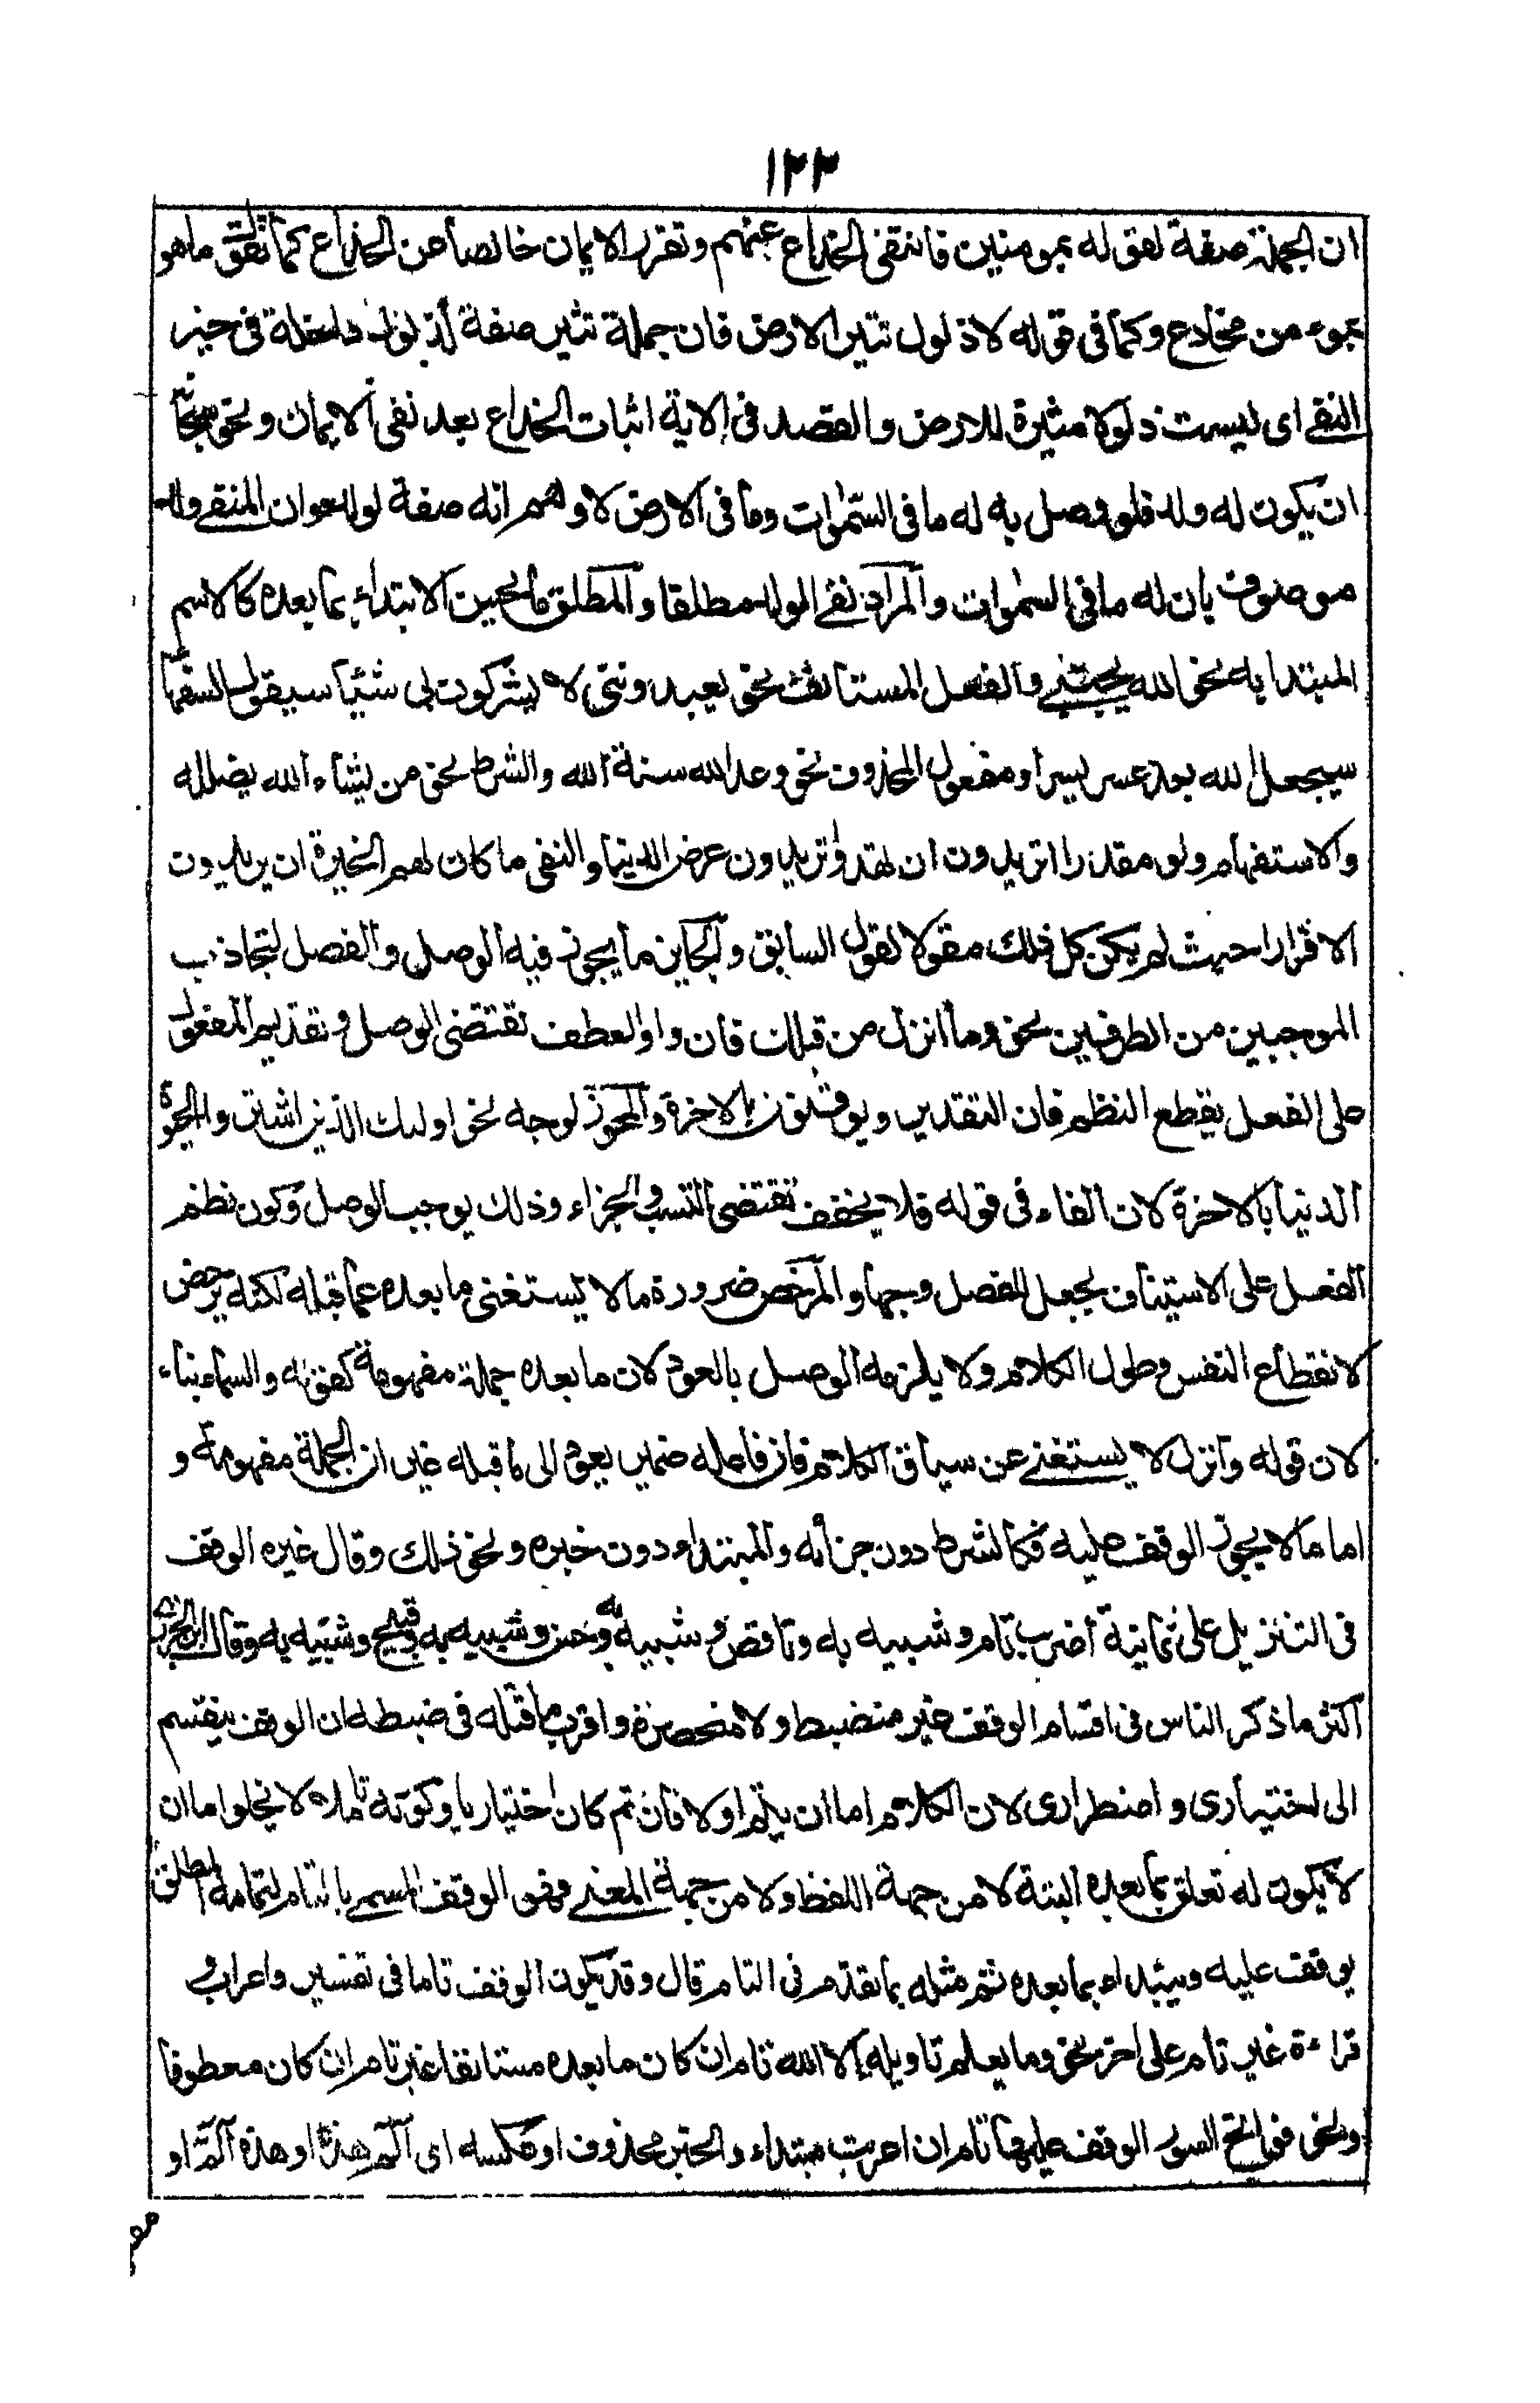 ١٢٣
ان الجملة صفة لقوله بمومنين فانتفى الخداع عنهم وتقرر الايمان خالصا عن الخداع كما تقول ما هو
بمومن مخادع وكما فى قوله لا ذلول تثير الارض فان جملة تثير صفة لذلول داخلة فى حيز
النفے اى ليست ذلولا مثيرة للارض والقصد فى الاية اثبات الخداع بعد نفى الايمان ونحو سبحانه
ان يكون له ولد فلو وصل به له ما فى السموات وما فى الارض لاوهم انه صفة لولد وان المنفے ولد
موصوف بان له ما فى السموات والمراد نفے الولد مطلقا والمطلق ما يحسن الابتداء بما بعده كالاسم
المبتدا به نحو الله يجتبے والفعل المستانف نحو يعبدوننى لا يشركون بى شيئا سيقول السفهاء
سيجعل الله بعد عسر يسرا ومفعول المحذوف نحو وعد الله سنة الله والشرط نحو من يشاء الله يضلله
والاستفهام ولو مقدرا اتريدون ان تهدوا تريدون عرض الدنيا والنفى ما كان لهم الخيرة ان يريدون
الا فرارا حيث لم يكن كل ذلك مقولا لقول السابق والجايز ما يجوز فيه الوصل والفصل لتجاذب
الموجبين من الطرفين نحو وما انزل من قبلك فان واو العطف تقتضى الوصل وتقديم المفعول
على الفعل يقطع النظم فان التقدير ويوقنون بالاخرة والمجوز لوجه نحو اولئك الذين اشتروا الحيوة
الدنيا بالاخرة لان الفاء فى قوله فلا يخفف تقتضى التسبب والجزاء وذلك يوجب الوصل وكون نظم
الفعل على الاستيناف يجعل للفصل وجها والمرخص ضرورة ما لا يستغنى ما بعده عما قبله لكنه يرخص
لانقطاع النفس وطول الكلام ولا يلزمه الوصل بالعود لان ما بعده جملة مفهومة كقوله والسماء بناء
لان قوله وانزل لا يستغنے عن سياق الكلام فان فاعله ضمير يعود الى ما قبله غير ان الجملة مفهومة و
اما ما لا يجوز الوقف عليه فكالشرط دون جزائه والمبتداء دون خبره ونحو ذلك وقال غيره الوقف
فى التنزيل على ثمانية اضرب تام وشبيه به وناقص وشبيه به وحسن وشبيه به وقبيح وشبيه به وقال ابن الجزرى
اكثر ما ذكر الناس فى اقسام الوقف غير منضبط ولا منحصرة واقرب ما قلته فى ضبطه ان الوقف ينقسم
الى اختيارى واضطرارى لان الكلام اما ان يتم اولا فان تم كان اختياريا وكونه تاما لا يخلوا ما ان
لا يكون له تعلق بما بعده البتة لا من جهة اللفظ ولا من جهة المعنے فهو الوقف المسمے بالتام لتمامه المطلق
يوقف عليه ويبتداء بما بعده ثم مثله بما تقدم فى التام قال وقد يكون الوقف تاما فى تفسير واعراب و
قراءة غير تام على اخر نحو وما يعلم تاويله الا الله تام ان كان ما بعده مستانفا غير تام ان كان معطوفا
ونحو فواتح السور الوقف عليها تام ان اعربت مبتداء والخبر محذوف او عكسه اى الٓمٓ هذا او هذه الٓمٓ او